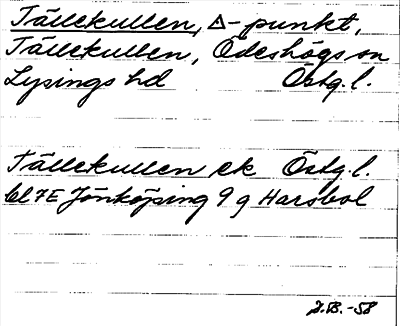 Tällekullen, Δ-punkt,
Tällekullen, Ödeshögs sn
Lysings hd Östg.l.
Tällekullen ek Östg.l.
bl 7E Jönköping 9 g Harsbol
J.B.-58